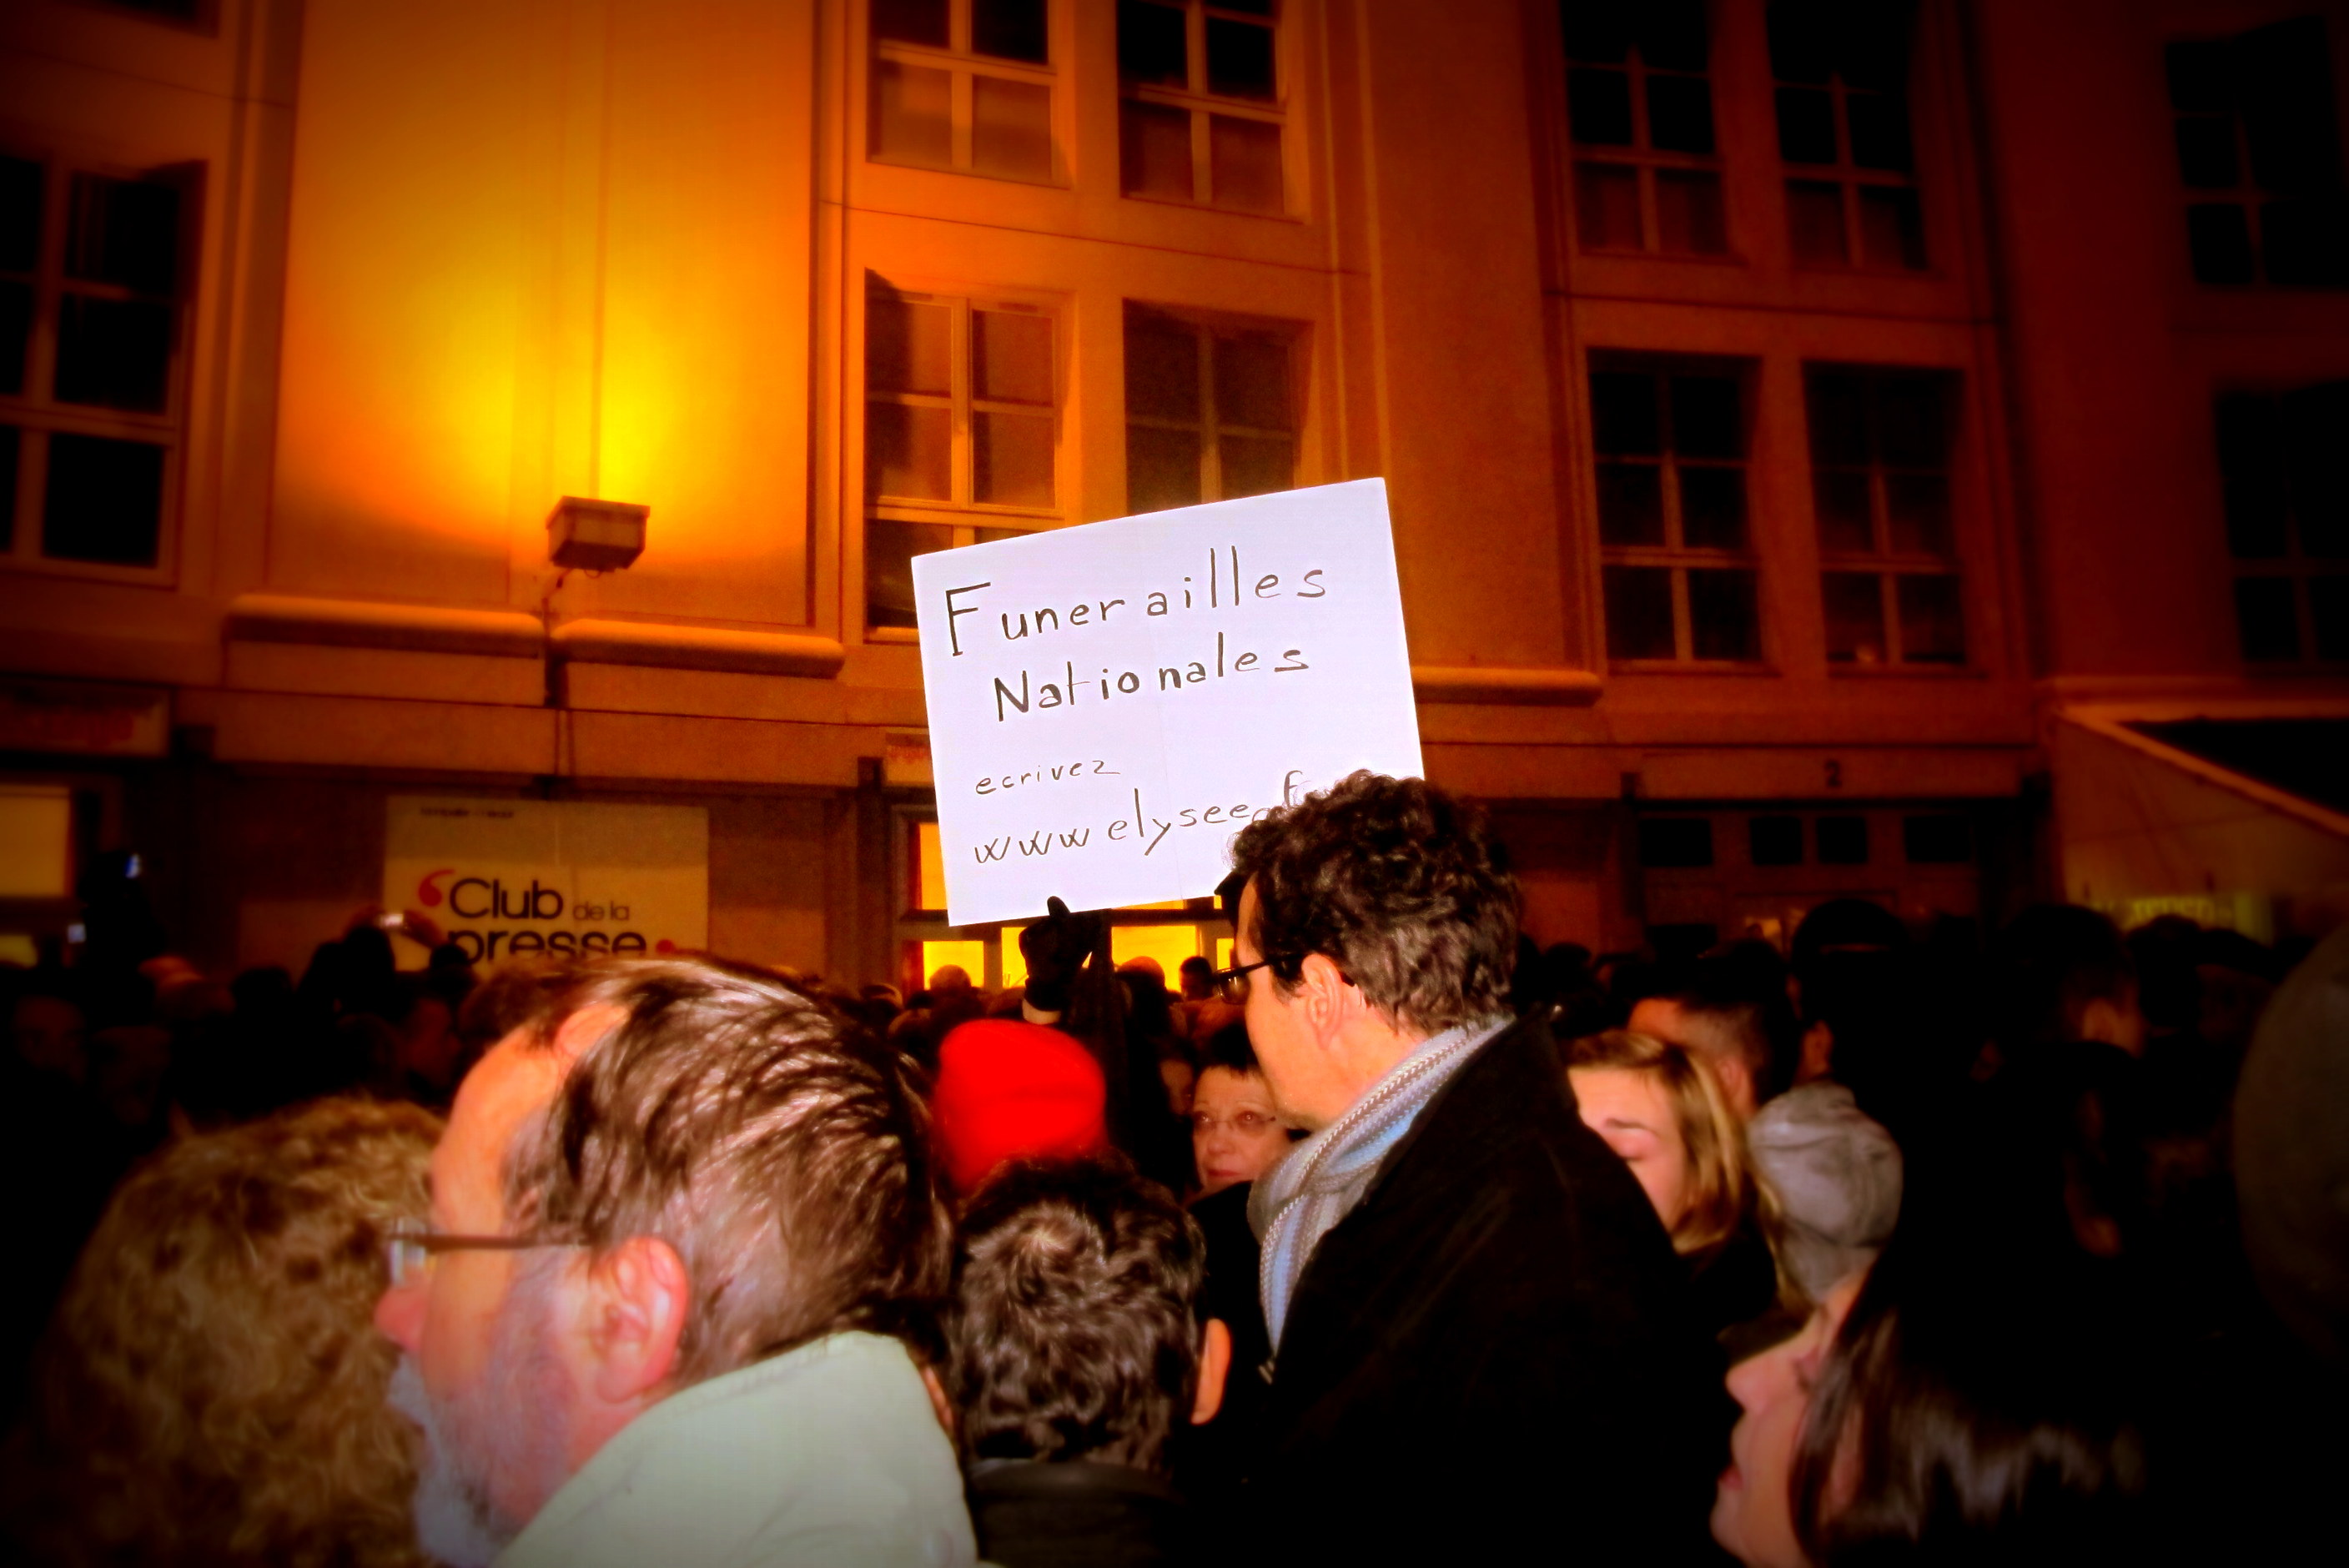 Funerailles
Nationales
ecrivez
www elysee
Club de la
presse
2